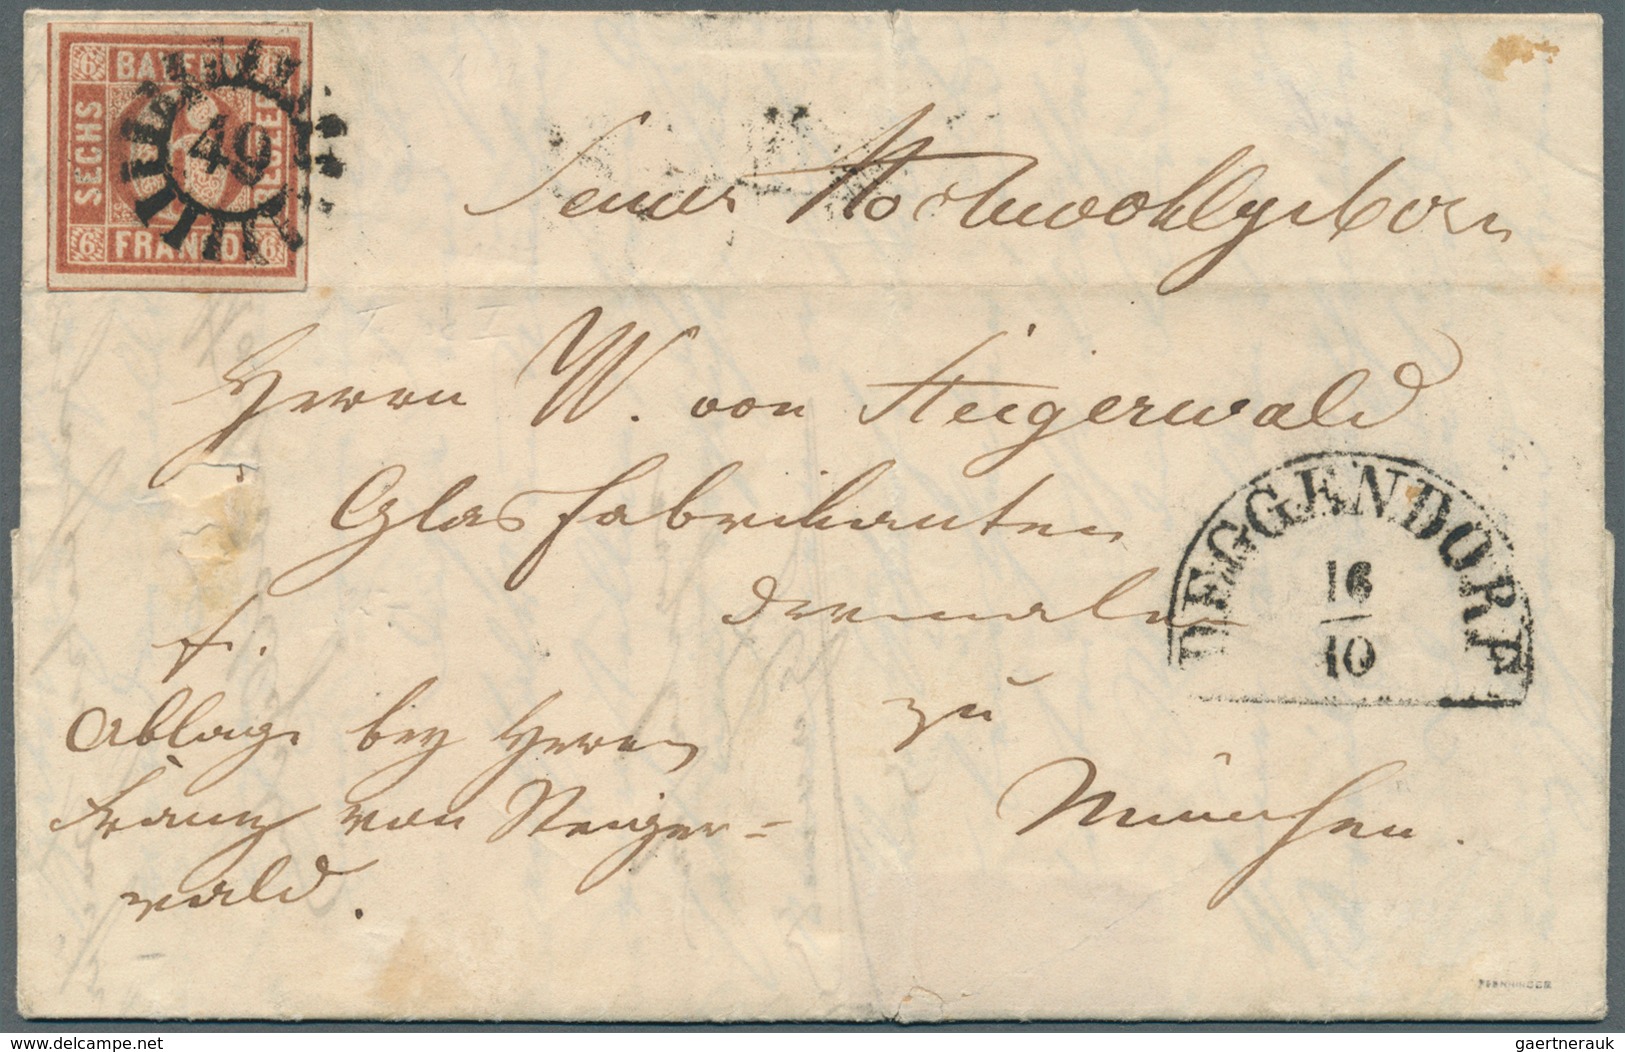 BAYERN
SECHS
FRANCO
6 6 6 6
49
Seiner Hochwohlgeborn
Herrn W. von Steigerwald
Glasfabrikanten
dermalen
zu
München.
f.
Ablage bey Herrn
Franz von Steiger=
wald.
DEGGENDORF
16
10
PFENNINGER
gaertnerauk